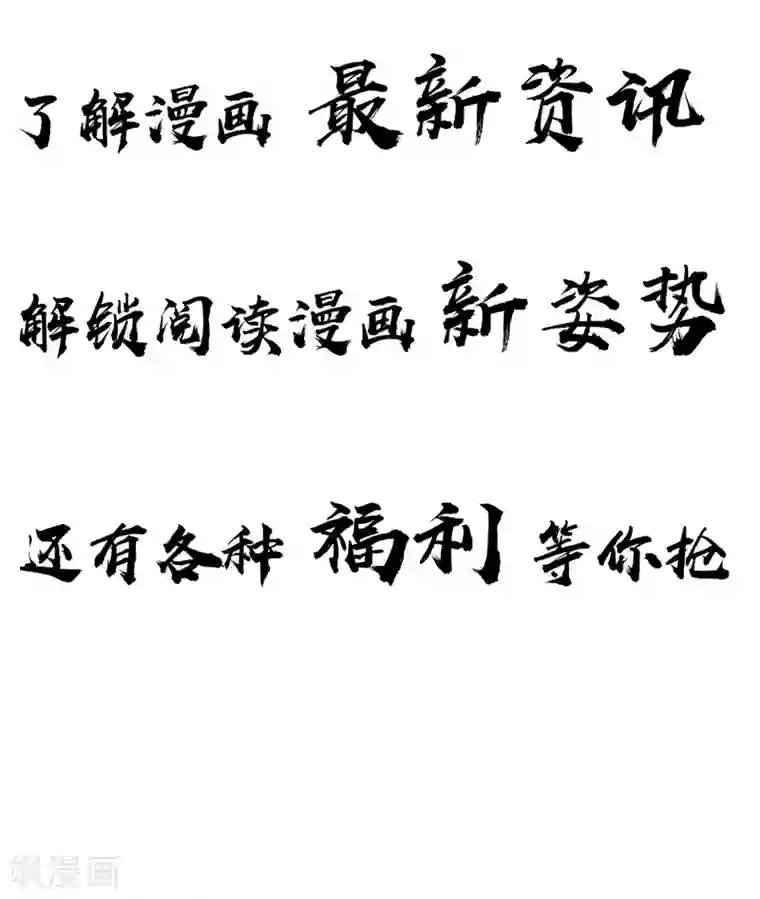 了解漫画 最新资讯
解锁阅读漫画新姿势
还有各种 福利 等你抢
飒漫画